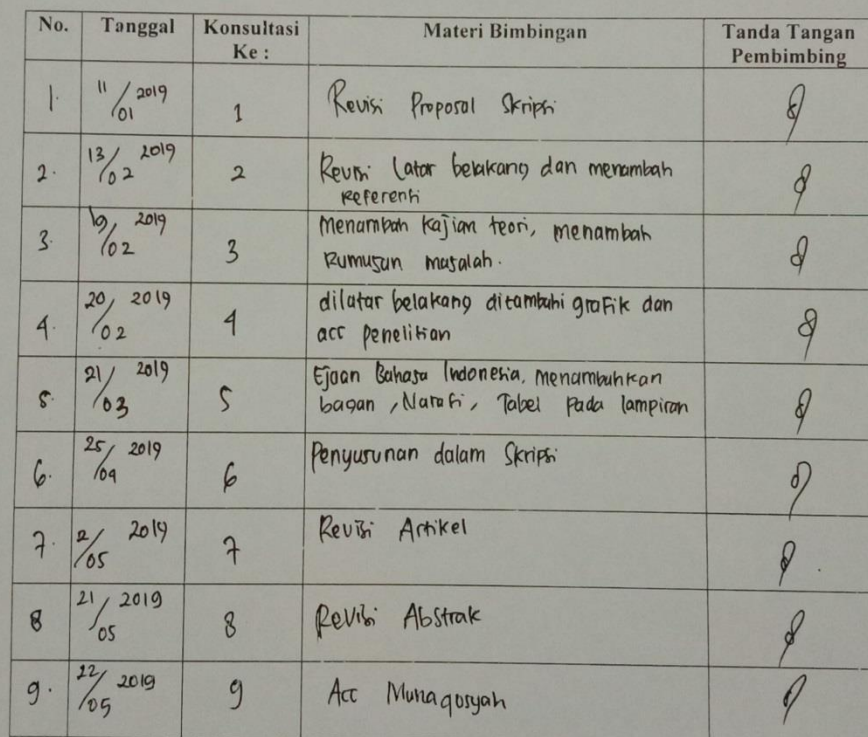 No. Tanggal Konsultasi Ke : Materi Bimbingan Tanda Tangan Pembimbing
1. 11/01 2019 1 Revisi Proposal Skripsi
2. 13/02 2019 2 Revisi latar belakang dan menambah
Referensi
3. 19/02 2019 3 Menambah Kajian teori, menambah
Rumusan masalah.
4. 20/02 2019 4 dilatar belakang ditambahi grafik dan
acc penelitian
5. 21/03 2019 5 Ejaan Bahasa Indonesia, menambahkan
bagan, Narasi, Tabel Pada lampiran
6. 25/04 2019 6 Penyusunan dalam Skripsi
7. 2/05 2019 7 Revisi Artikel
8 21/05 2019 8 Revisi Abstrak
9. 22/05 2019 9 Acc Munaqosyah